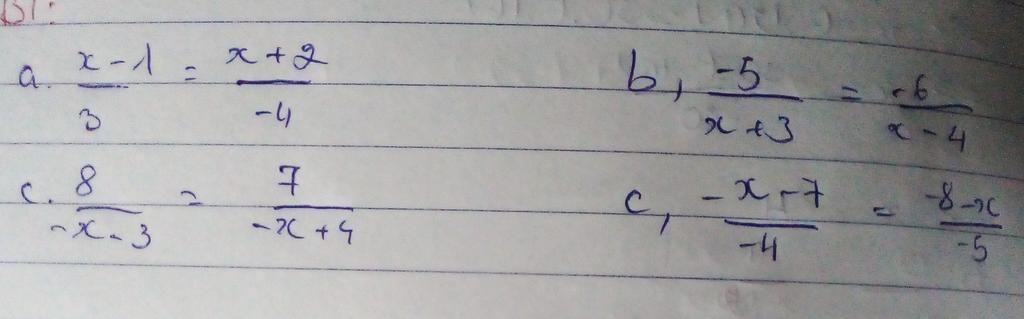 B1:
a. (x - 1)/3 = (x + 2)/-4    b, -5/(x + 3) = -6/(x - 4)
c. 8/(-x - 3) = 7/(-x + 4)    c, (-x - 7)/-4 = (-8 - x)/-5